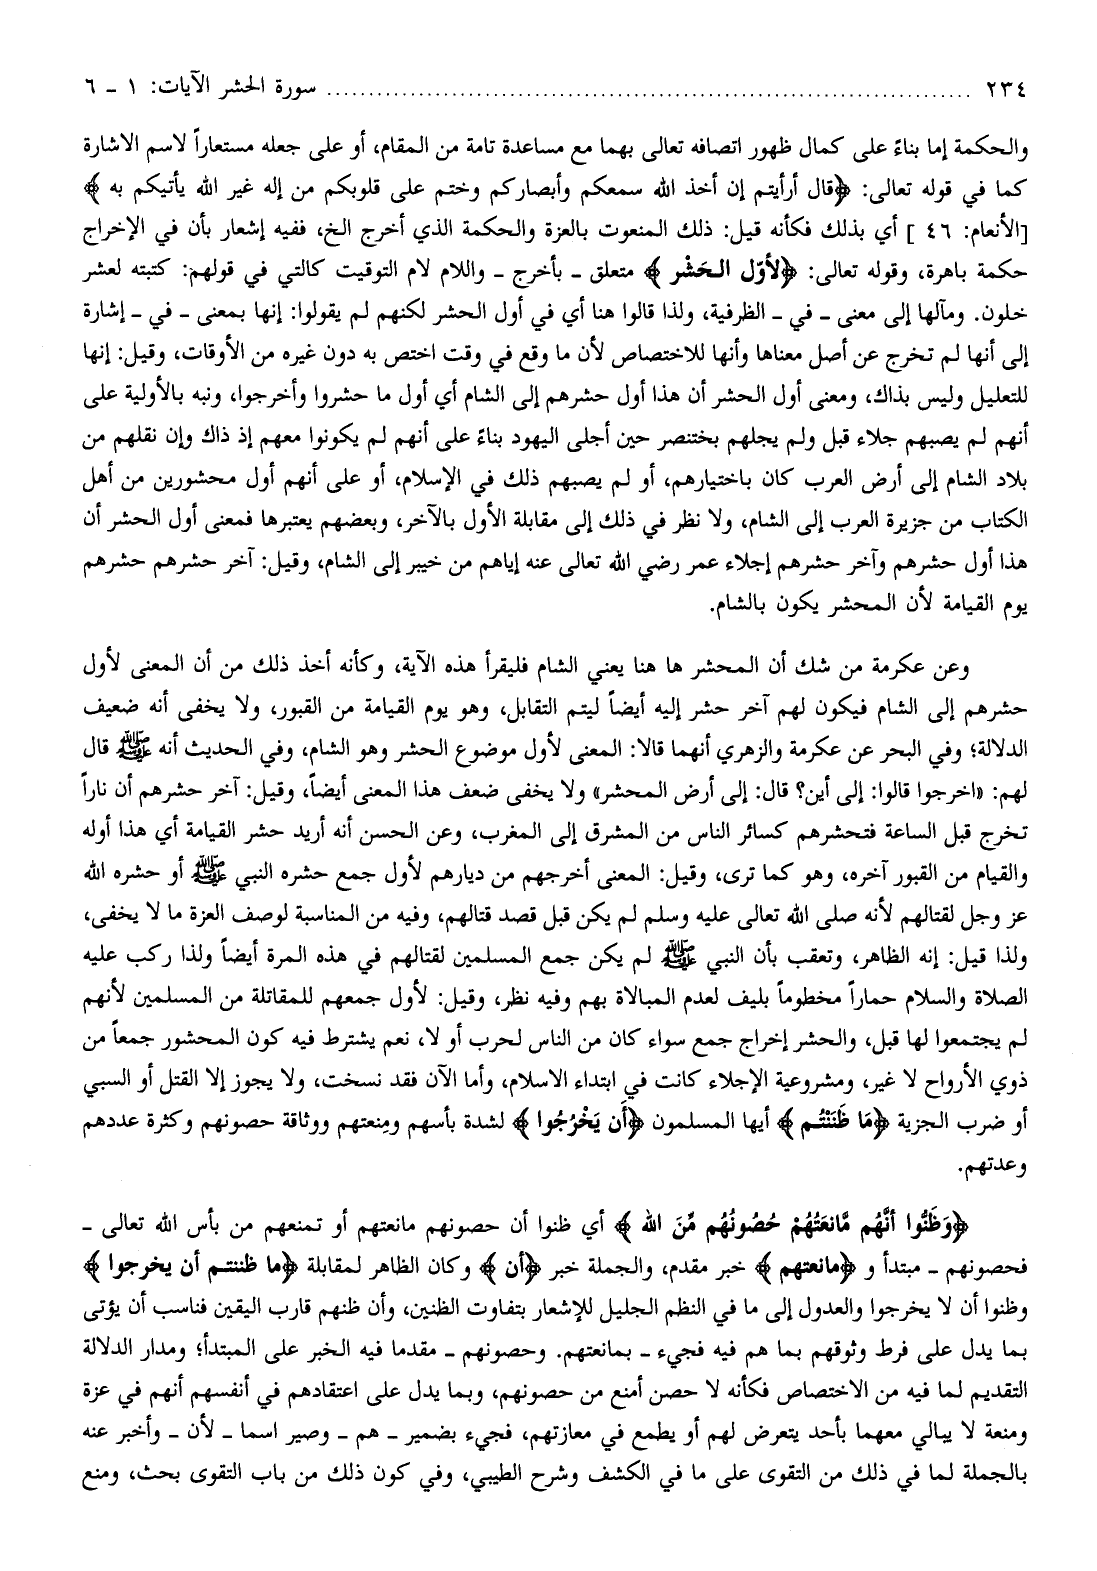 ٢٣٤ ........................................................................ سورة الحشر الآيات: ١ ـ ٦
والحكمة إما بناءً على كمال ظهور اتصافه تعالى بهما مع مساعدة تامة من المقام، أو على جعله مستعاراً لاسم الاشارة
كما في قوله تعالى: ﴿قال أرأيتم إن أخذ الله سمعكم وأبصاركم وختم على قلوبكم من إله غير الله يأتيكم به ﴾
[الأنعام: ٤٦ ] أي بذلك فكأنه قيل: ذلك المنعوت بالعزة والحكمة الذي أخرج الخ، ففيه إشعار بأن في الإخراج
حكمة باهرة، وقوله تعالى: ﴿لأوّل الـحَشْر ﴾ متعلق ـ بأخرج ـ واللام لام التوقيت كالتي في قولهم: كتبته لعشر
خلون. ومآلها إلى معنى ـ في ـ الظرفية، ولذا قالوا هنا أي في أول الحشر لكنهم لم يقولوا: إنها بمعنى ـ في ـ إشارة
إلى أنها لم تخرج عن أصل معناها وأنها للاختصاص لأن ما وقع في وقت اختص به دون غيره من الأوقات، وقيل: إنها
للتعليل وليس بذاك، ومعنى أول الحشر أن هذا أول حشرهم إلى الشام أي أول ما حشروا وأخرجوا، ونبه بالأولية على
أنهم لم يصبهم جلاء قبل ولم يجلهم بختنصر حين أجلى اليهود بناءً على أنهم لم يكونوا معهم إذ ذاك وإن نقلهم من
بلاد الشام إلى أرض العرب كان باختيارهم، أو لم يصبهم ذلك في الإسلام، أو على أنهم أول محشورين من أهل
الكتاب من جزيرة العرب إلى الشام، ولا نظر في ذلك إلى مقابلة الأول بالآخر، وبعضهم يعتبرها فمعنى أول الحشر أن
هذا أول حشرهم وآخر حشرهم إجلاء عمر رضي الله تعالى عنه إياهم من خيبر إلى الشام، وقيل: آخر حشرهم حشرهم
يوم القيامة لأن المحشر يكون بالشام.
وعن عكرمة من شك أن المحشر ها هنا يعني الشام فليقرأ هذه الآية، وكأنه أخذ ذلك من أن المعنى لأول
حشرهم إلى الشام فيكون لهم آخر حشر إليه أيضاً ليتم التقابل، وهو يوم القيامة من القبور، ولا يخفى أنه ضعيف
الدلالة؛ وفي البحر عن عكرمة والزهري أنهما قالا: المعنى لأول موضوع الحشر وهو الشام، وفي الحديث أنه ﷺ قال
لهم: «اخرجوا قالوا: إلى أين؟ قال: إلى أرض المحشر» ولا يخفى ضعف هذا المعنى أيضاً، وقيل: آخر حشرهم أن ناراً
تخرج قبل الساعة فتحشرهم كسائر الناس من المشرق إلى المغرب، وعن الحسن أنه أريد حشر القيامة أي هذا أوله
والقيام من القبور آخره، وهو كما ترى، وقيل: المعنى أخرجهم من ديارهم لأول جمع حشره النبي ﷺ أو حشره الله
عز وجل لقتالهم لأنه صلى الله تعالى عليه وسلم لم يكن قبل قصد قتالهم، وفيه من المناسبة لوصف العزة ما لا يخفى،
ولذا قيل: إنه الظاهر، وتعقب بأن النبي ﷺ لم يكن جمع المسلمين لقتالهم في هذه المرة أيضاً ولذا ركب عليه
الصلاة والسلام حماراً مخطوماً بليف لعدم المبالاة بهم وفيه نظر، وقيل: لأول جمعهم للمقاتلة من المسلمين لأنهم
لم يجتمعوا لها قبل، والحشر إخراج جمع سواء كان من الناس لحرب أو لا، نعم يشترط فيه كون المحشور جمعاً من
ذوي الأرواح لا غير، ومشروعية الإجلاء كانت في ابتداء الاسلام، وأما الآن فقد نسخت، ولا يجوز إلا القتل أو السبي
أو ضرب الجزية ﴿مَا ظَنَنْتُم ﴾ أيها المسلمون ﴿أَن يَخْرُجُوا ﴾ لشدة بأسهم ومِنعتهم ووثاقة حصونهم وكثرة عددهم
وعدتهم.
﴿وَظَنُّوا أنَّهُم مَّانعَتُهُمْ حُصُونُهُم مِّنَ الله ﴾ أي ظنوا أن حصونهم مانعتهم أو تمنعهم من بأس الله تعالى ـ
فحصونهم ـ مبتدأ و ﴿مانعتهم ﴾ خبر مقدم، والجملة خبر ﴿أن ﴾ وكان الظاهر لمقابلة ﴿ما ظننتم أن يخرجوا ﴾
وظنوا أن لا يخرجوا والعدول إلى ما في النظم الجليل للإشعار بتفاوت الظنين، وأن ظنهم قارب اليقين فناسب أن يؤتى
بما يدل على فرط وثوقهم بما هم فيه فجيء ـ بمانعتهم. وحصونهم ـ مقدما فيه الخبر على المبتدأ؛ ومدار الدلالة
التقديم لما فيه من الاختصاص فكأنه لا حصن أمنع من حصونهم، وبما يدل على اعتقادهم في أنفسهم أنهم في عزة
ومنعة لا يبالي معهما بأحد يتعرض لهم أو يطمع في معازتهم، فجيء بضمير ـ هم ـ وصير اسما ـ لأن ـ وأخبر عنه
بالجملة لما في ذلك من التقوى على ما في الكشف وشرح الطيبي، وفي كون ذلك من باب التقوى بحث، ومنع